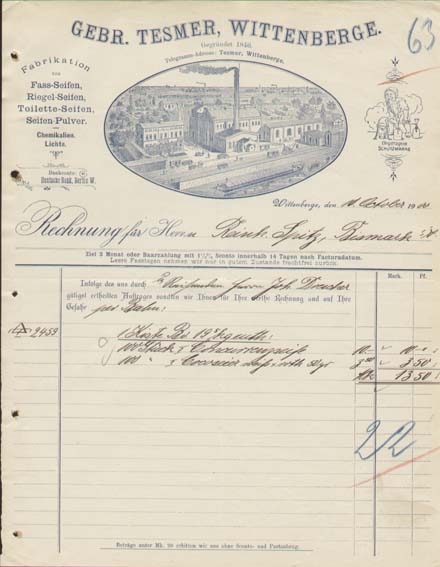 GEBR. TESMER, WITTENBERGE.
Gegründet 1846.
Telegramm-Adresse: Tesmer, Wittenberge.
63
Fabrikation
von
Fass-Seifen,
Riegel-Seifen,
Toilette-Seifen,
Seifen-Pulver.
Chemikalien.
Lichte.
Bankconto:
Deutsche Bank, Berlin W.
SCHUTZMARKE
Wittenberge, den October 19
Rechnung für Herrn Reinh. Spitz, Bismark
Ziel 2 Monat oder Baarzahlung mit Sconto innerhalb 14 Tagen nach Facturadatum.
Leere Fasstagen nehmen wir nur in gutem Zustande frachtfrei zurück.
Mark. Pf.
Infolge des uns durch Herrn Joh.
gütigst ertheilten Auftrages sandten wir Ihnen für Ihre werthe Rechnung und auf Ihre
Gefahr per Bahn:
2459 1 Kiste
100 Stück 10
100 3 50
13 50
2/2
Beträge unter Mk. 20 erbitten wir uns ohne Sconto- und Portoabzug.